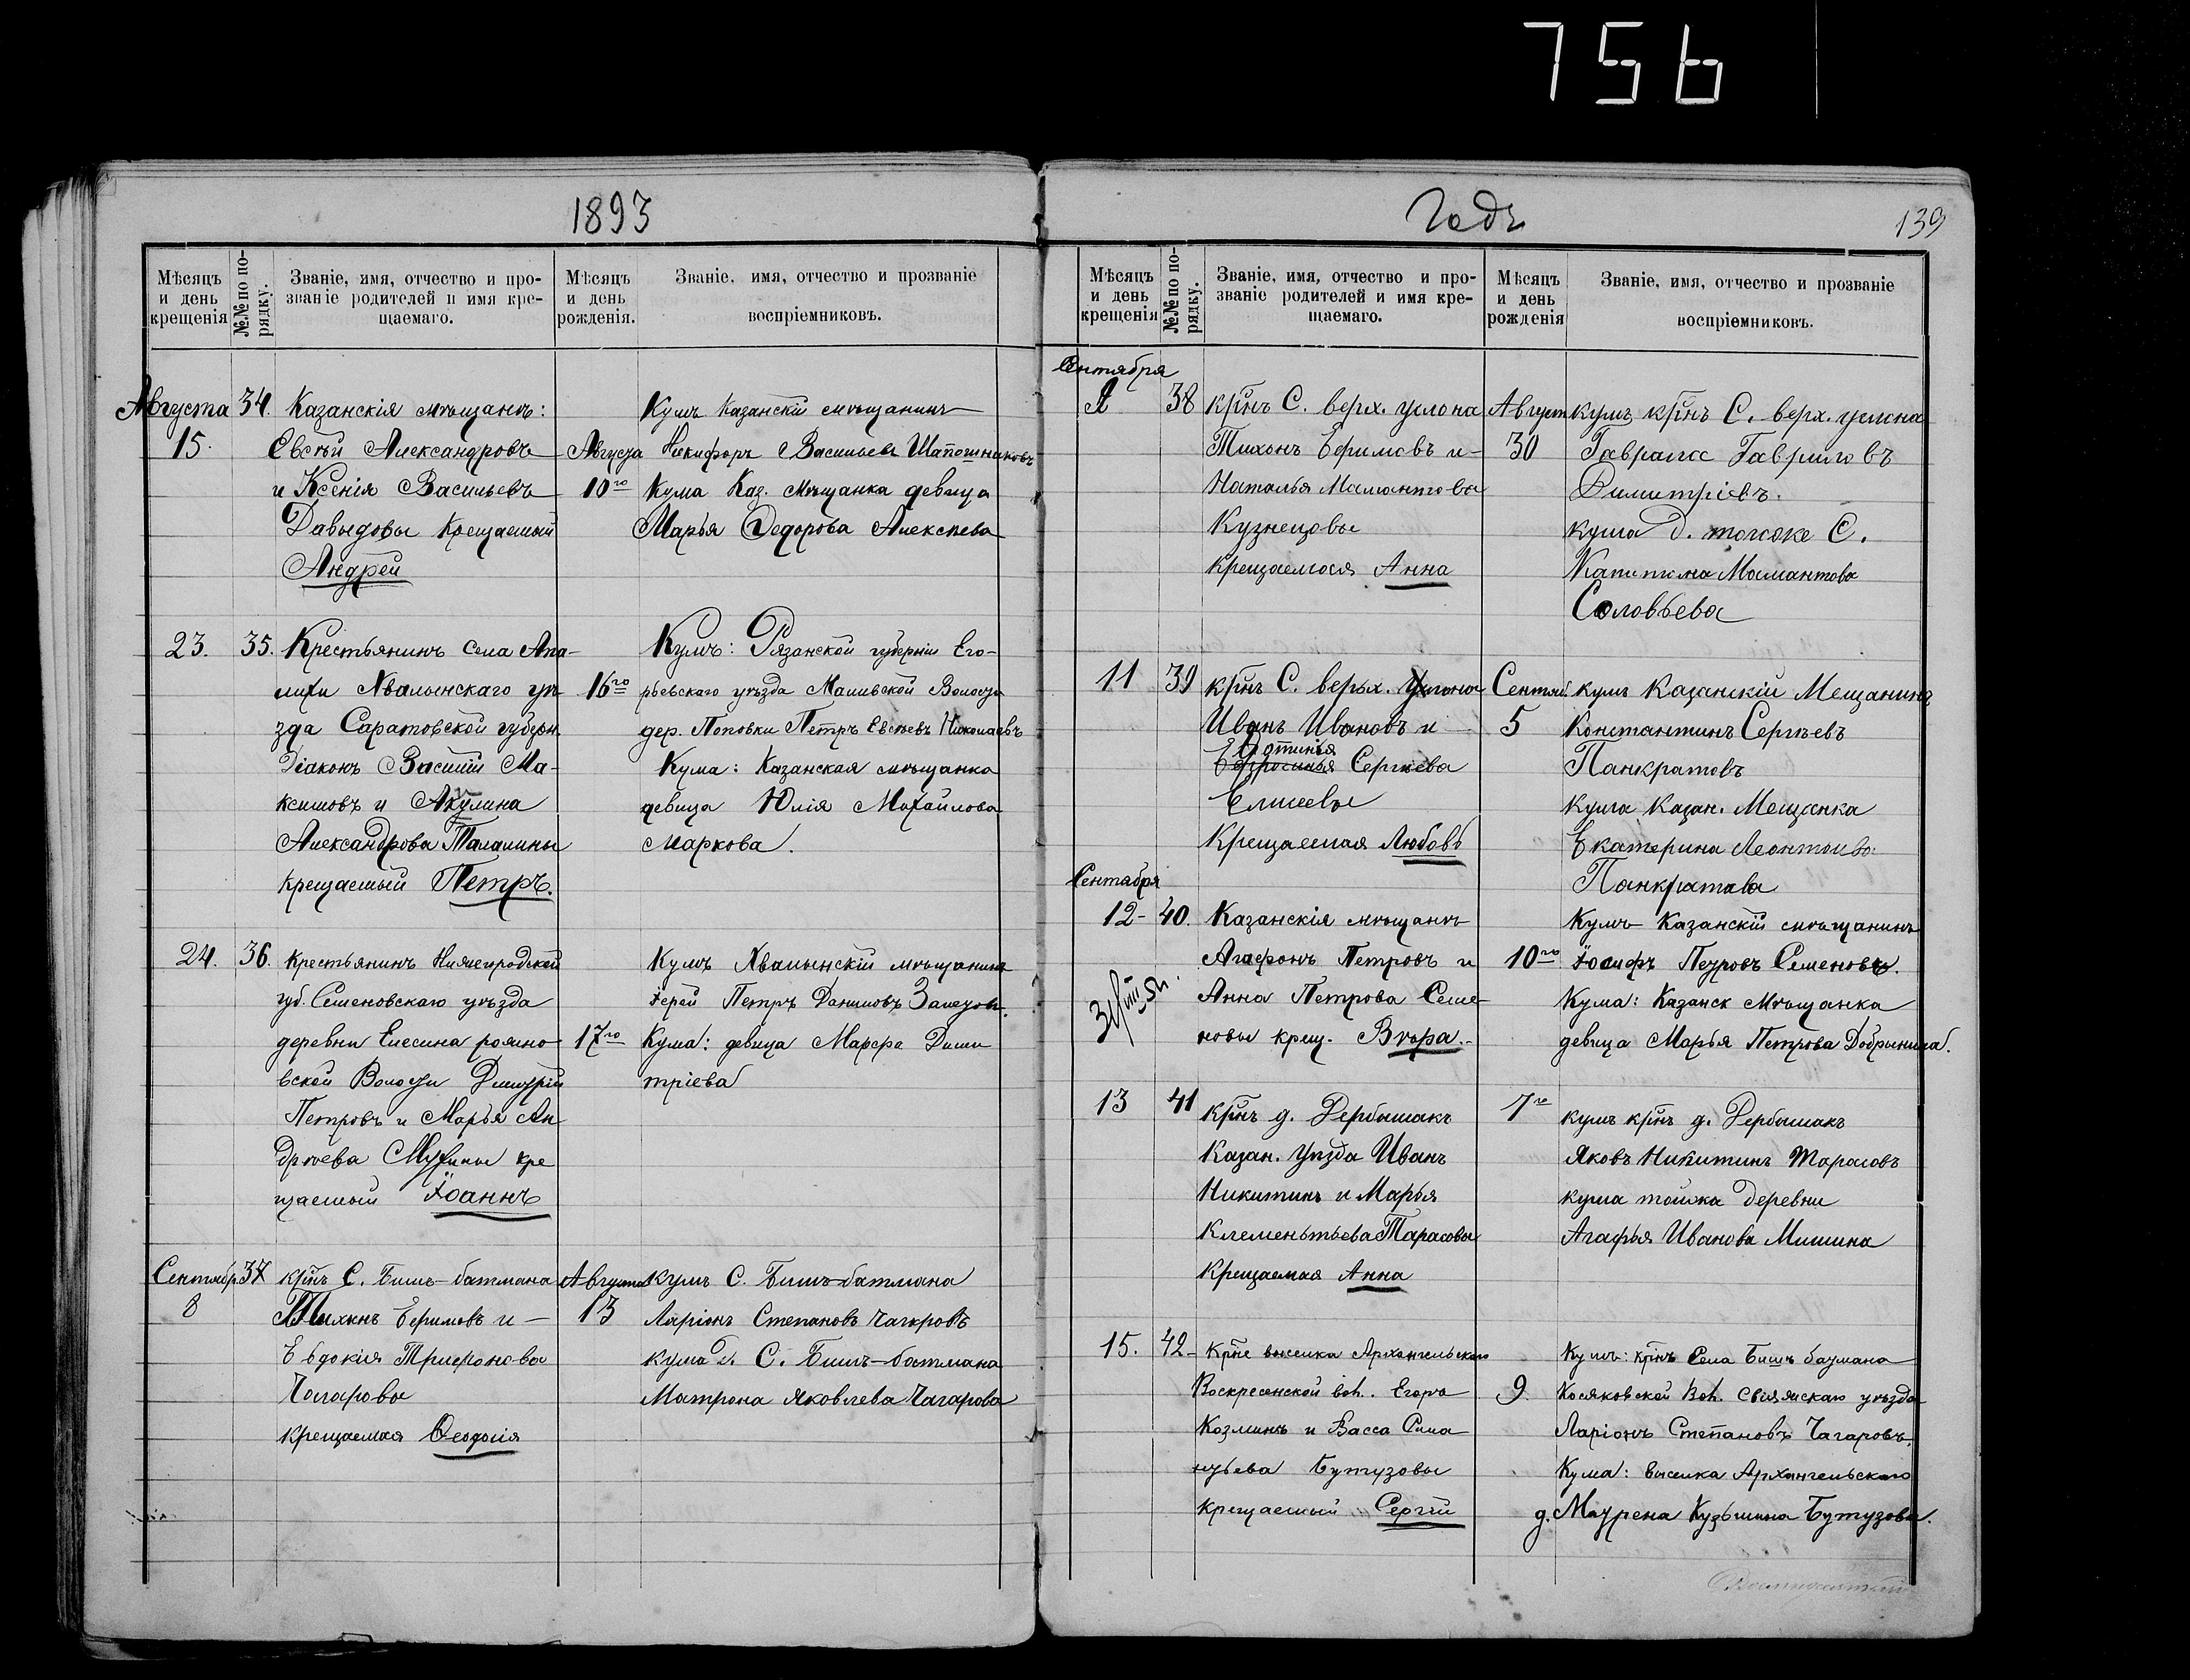 756
1893
Мѣсяцъ и день крещенія
№№ по порядку.
Званіе, имя, отчество и прозваніе родителей и имя крещаемаго.
Мѣсяцъ и день рожденія.
Званіе, имя, отчество и прозваніе воспріемниковъ.
Августа 15.
34.
Казанскія мѣщанъ:
Евсѣй Александровъ
и Ксенія Васильевъ
Давыдовы крещаемый
Андрей
Августа
10го
Кумъ Казанскій мѣщанинъ
Никифоръ Васильевъ Шапошниковъ
Кума Каз. мѣщанка девица
Марья Федорова Алексѣева
23.
35.
Крестьянинъ села Апа-
лихи Хвалынскаго уѣ
зда Саратовской губерн.
Діаконъ Василій Ма-
ксимовъ и Акулина
Александрова Талалины
крещаемый Петръ.
16го
Кумъ: Рязанской губерніи Его-
рьевскаго уѣзда Маливской Волости
дер. Поповки Петръ Евсѣевъ Николаевъ
Кума: Казанская мѣщанка
девица Юлія Михайлова
Маркова.
24.
36.
Крестьянинъ Нижегородской
губ. Семеновскаго уѣзда
деревни Елесина рожно
вской Волости Димитрій
Петровъ и Марья Ан
дрѣева Мухины кре
щаемый Іоаннъ
17го
Кумъ Хвалынскій мѣщанинъ
Іерей Петръ Даниловъ Залетовъ.
Кума: девица Марфа Дими
тріева
Сентябр. 8
37
крнъ С. Бишъ-батмана
Тихонъ Ефимовъ и —
Евдокія Трифонова
Чагаровы
крещаемая Феодосія
Августа
13
кумъ С. Бишъ-батмана
Ларіонъ Степановъ Чагаровъ
кума д. С. Бишъ-батмана
Матрона Яковлева Чагарова
Годъ
139
Мѣсяцъ и день крещенія
№№ по порядку.
Званіе, имя, отчество и прозваніе родителей и имя крещаемаго.
Мѣсяцъ и день рожденія
Званіе, имя, отчество и прозваніе воспріемниковъ.
Сентября
38
крнъ С. верх. услона
Тихонъ Ефимовъ и —
Наталья Мамонтова
Кузнецовы
крещаемая Анна
Август
30
кумъ крнъ С. верх. услона
Гаврила Гавриловъ
Димитріевъ.
кума д. тогоже С.
Капитолина Мамантова
Соловьева
11
39
крнъ С. верх. Услона
Иванъ Ивановъ и
Фотинья
Сергѣева
Елисеевы
Крещаемая Любовь
Сентяб.
5
кумъ Казанскій Мещанинъ
Константинъ Сергѣевъ
Панкратовъ
Кума Казан. Мещанка
Екатерина Леонтьево.
Панкратова
Сентября
12-
40.
Казанскія мѣщанъ
Агафонъ Петровъ и
Анна Петрова Семе-
новы крещ. Вѣра.
10го
Кумъ Казанскій мѣщанинъ
Іосифъ Петровъ Семеновъ.
Кума: Казанск мѣщанка
девица Марья Петрова Добрынина.
13
41
крнъ д. Дербышакъ
Казан. Уѣзда Иванъ
Никитинъ и Марья
Клементьева Тарасовы
Крещаемая Анна
7го
кумъ крнъ д. Дербышакъ
Яковъ Никитинъ Тарасовъ
кума тойже деревни
Агафья Иванова Мишина
15.
42-
Крне выселка Архангельскаго
Воскресенской вол. Егоръ
Козминъ и Васса Сила
нтьева Бутузовы
крещаемый Сергій
9.
Кумъ: крнъ Села Бишъ батмана
Косяковской Вол. Свіяжскаго уѣзда
Ларіонъ Степановъ Чагаровъ.
Кума: выселка Архангельскаго
д. Маѵрена Кузьмина Бутузова.